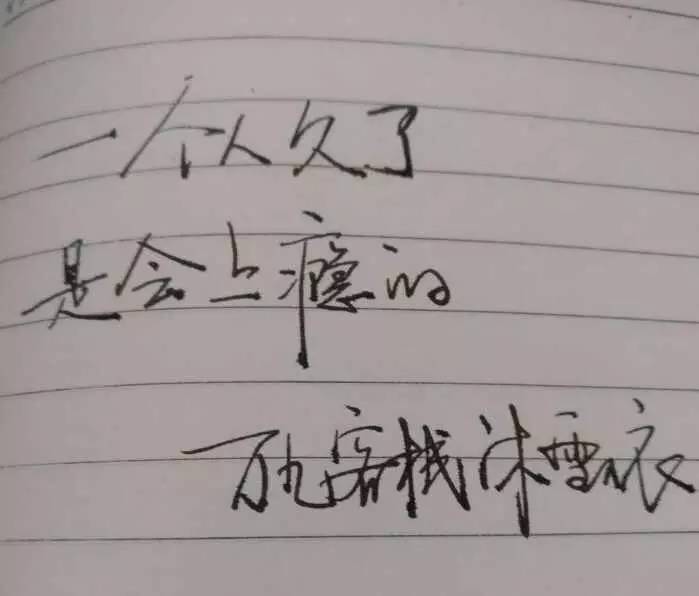 一个人久了
是会上瘾的
万九客栈沐雪衣